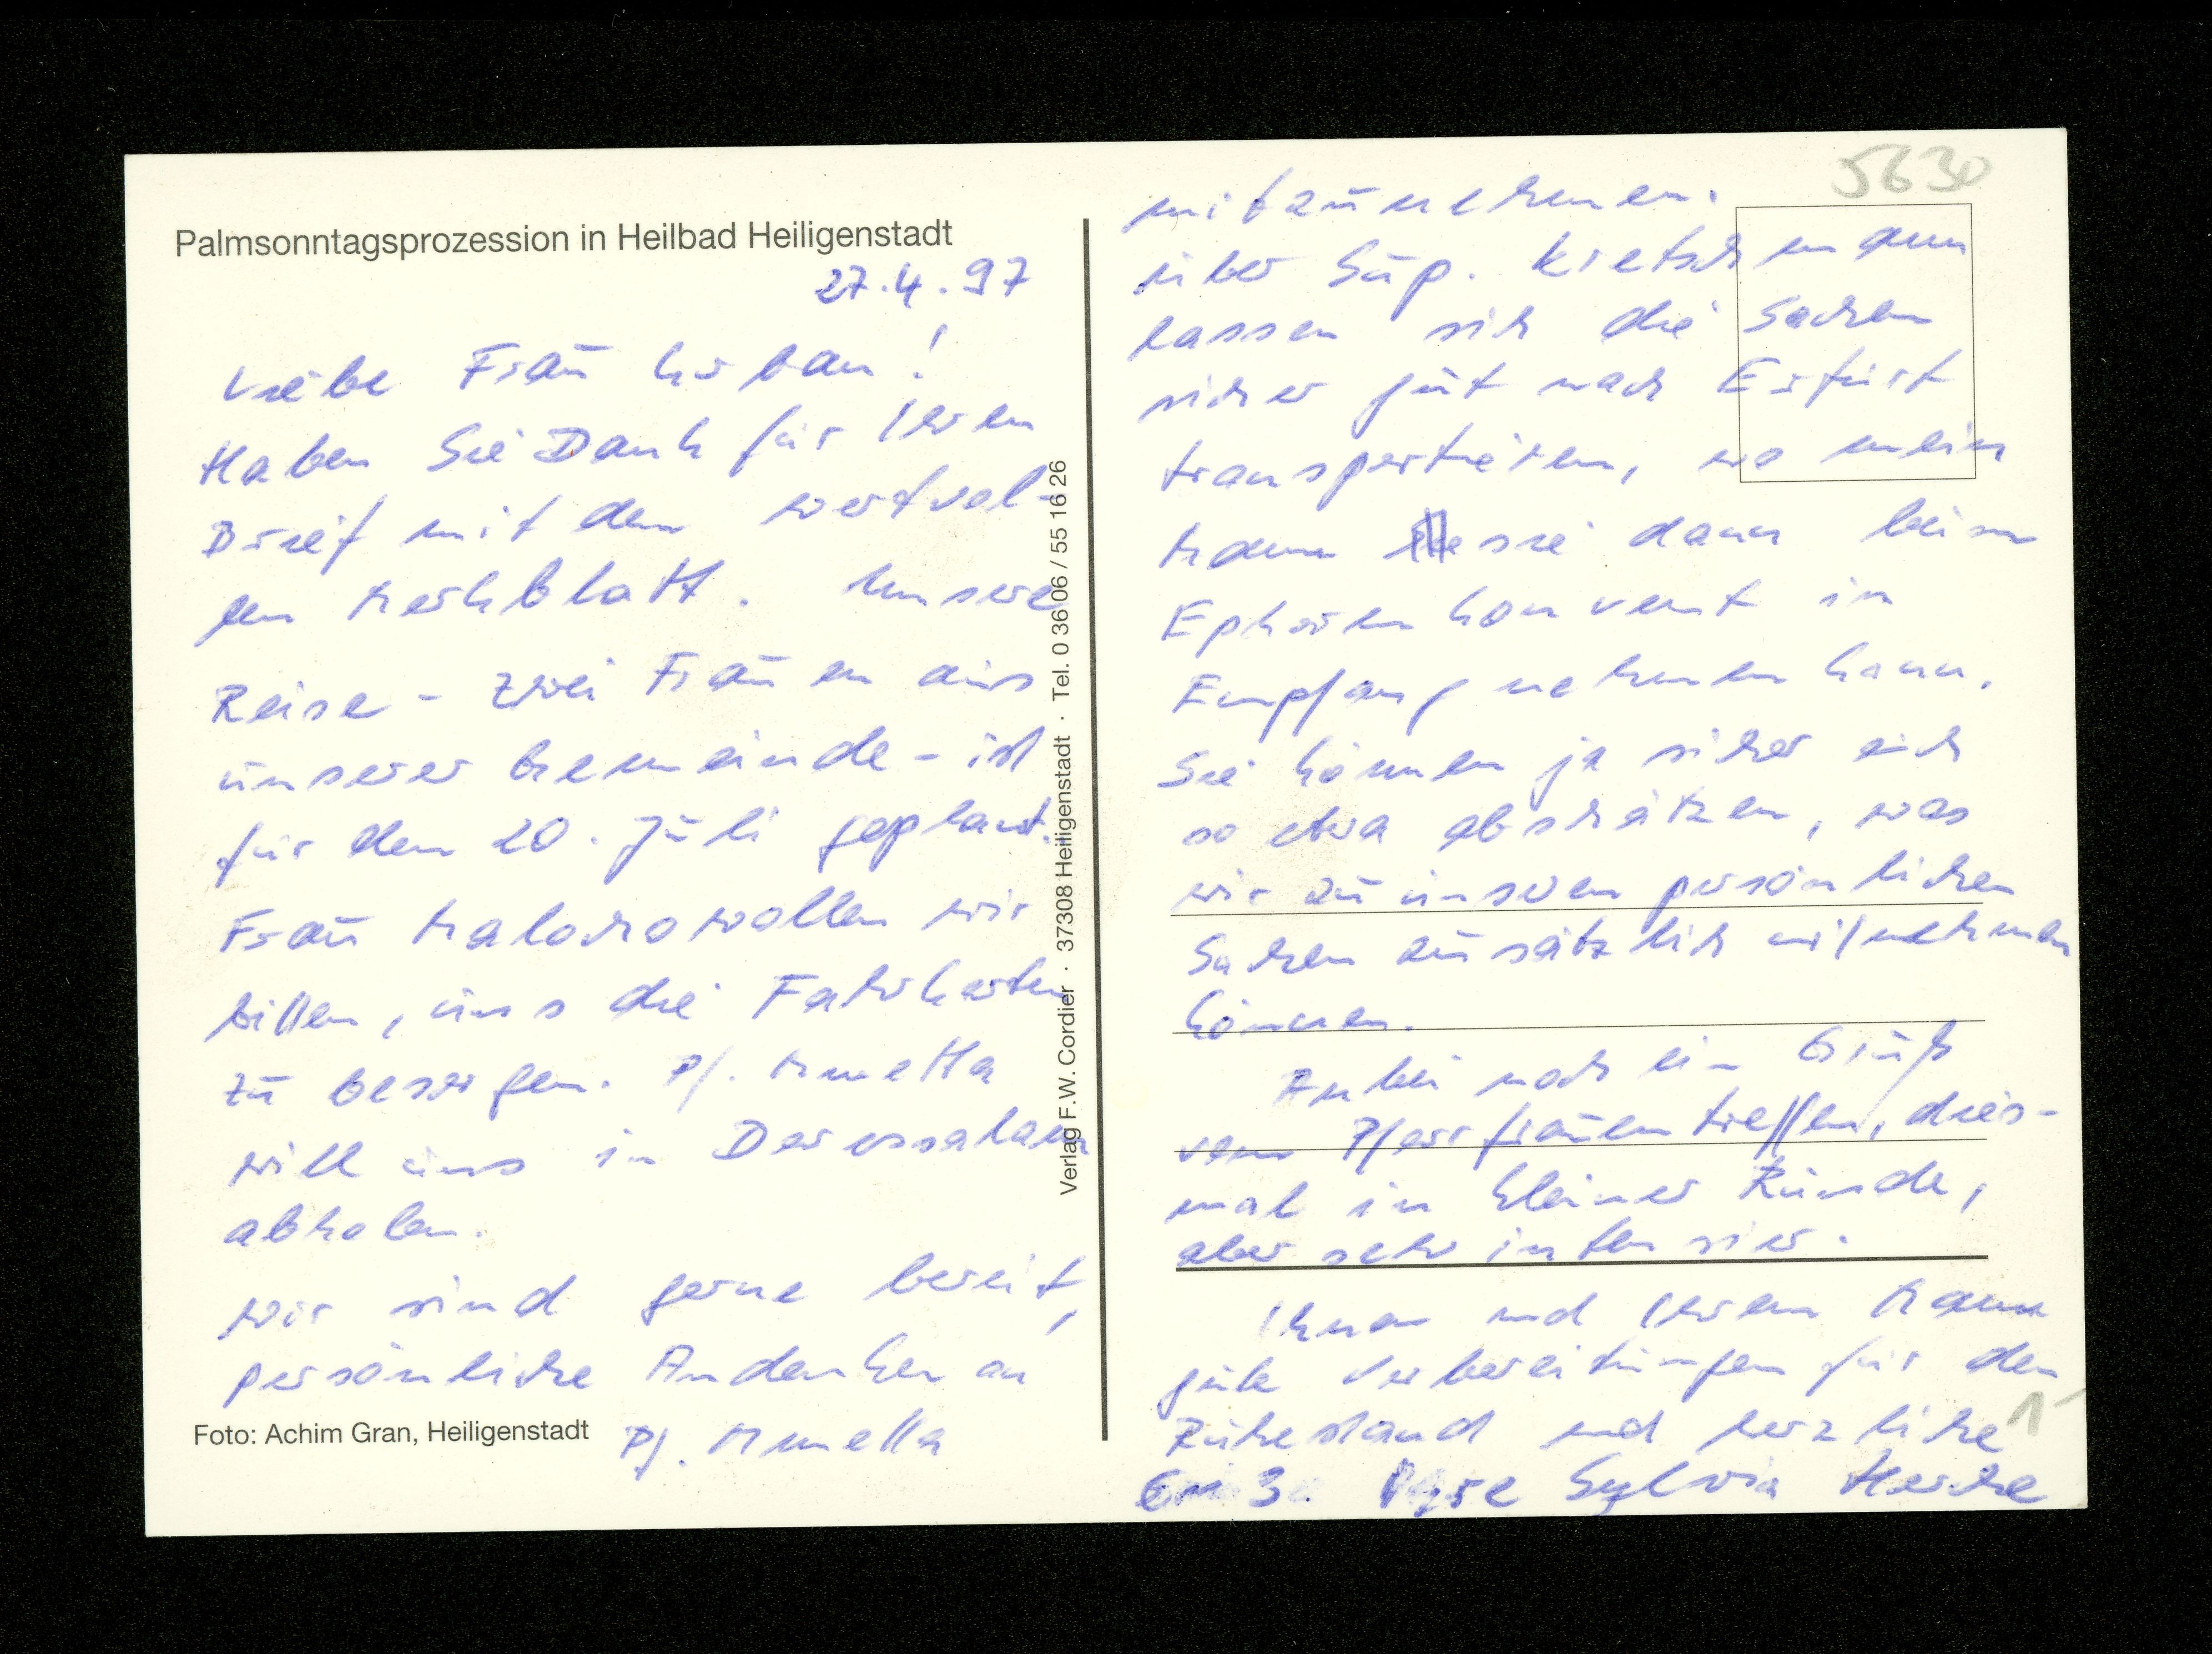 Palmsonntagsprozession in Heilbad Heiligenstadt
27.4.97
Liebe Frau Urban!
Haben Sie Dank für Ihren
Brief mit dem wertvol-
len Merkblatt. Unsere
Reise - zwei Frauen aus
unserer Gemeinde - ist
für den 20. Juli geplant.
Frau Malocho wollen wir
bitten, uns die Fahrkarten
zu besorgen. Pf. Mmella
will uns in Daressalam
abholen.
Wir sind gerne bereit,
persönliche Andenken an
Pf. Mmella
Foto: Achim Gran, Heiligenstadt
Verlag F.W. Cordier · 37308 Heiligenstadt · Tel. 0 36 06 / 55 16 26
5630
mitzunehmen.
über Sup. Kretschmann
lassen sich die Sachen
sicher gut nach Erfurt
transportieren, wo mein
Mann sie dann beim
Ephorenkonvent in
Empfang nehmen kann.
Sie können ja sicher auch
so etwa abschätzen, was
wir zu unseren persönlichen
Sachen zusätzlich mitnehmen
können.
Anbei noch ein Gruß
vom Pfarrfrauentreffen, dies-
mal in kleiner Runde,
aber sehr intensiv.
Ihnen und Ihrem Mann
gute Vorbereitungen für den
Ruhestand und herzliche
Ihre Sylvia Herche
1-